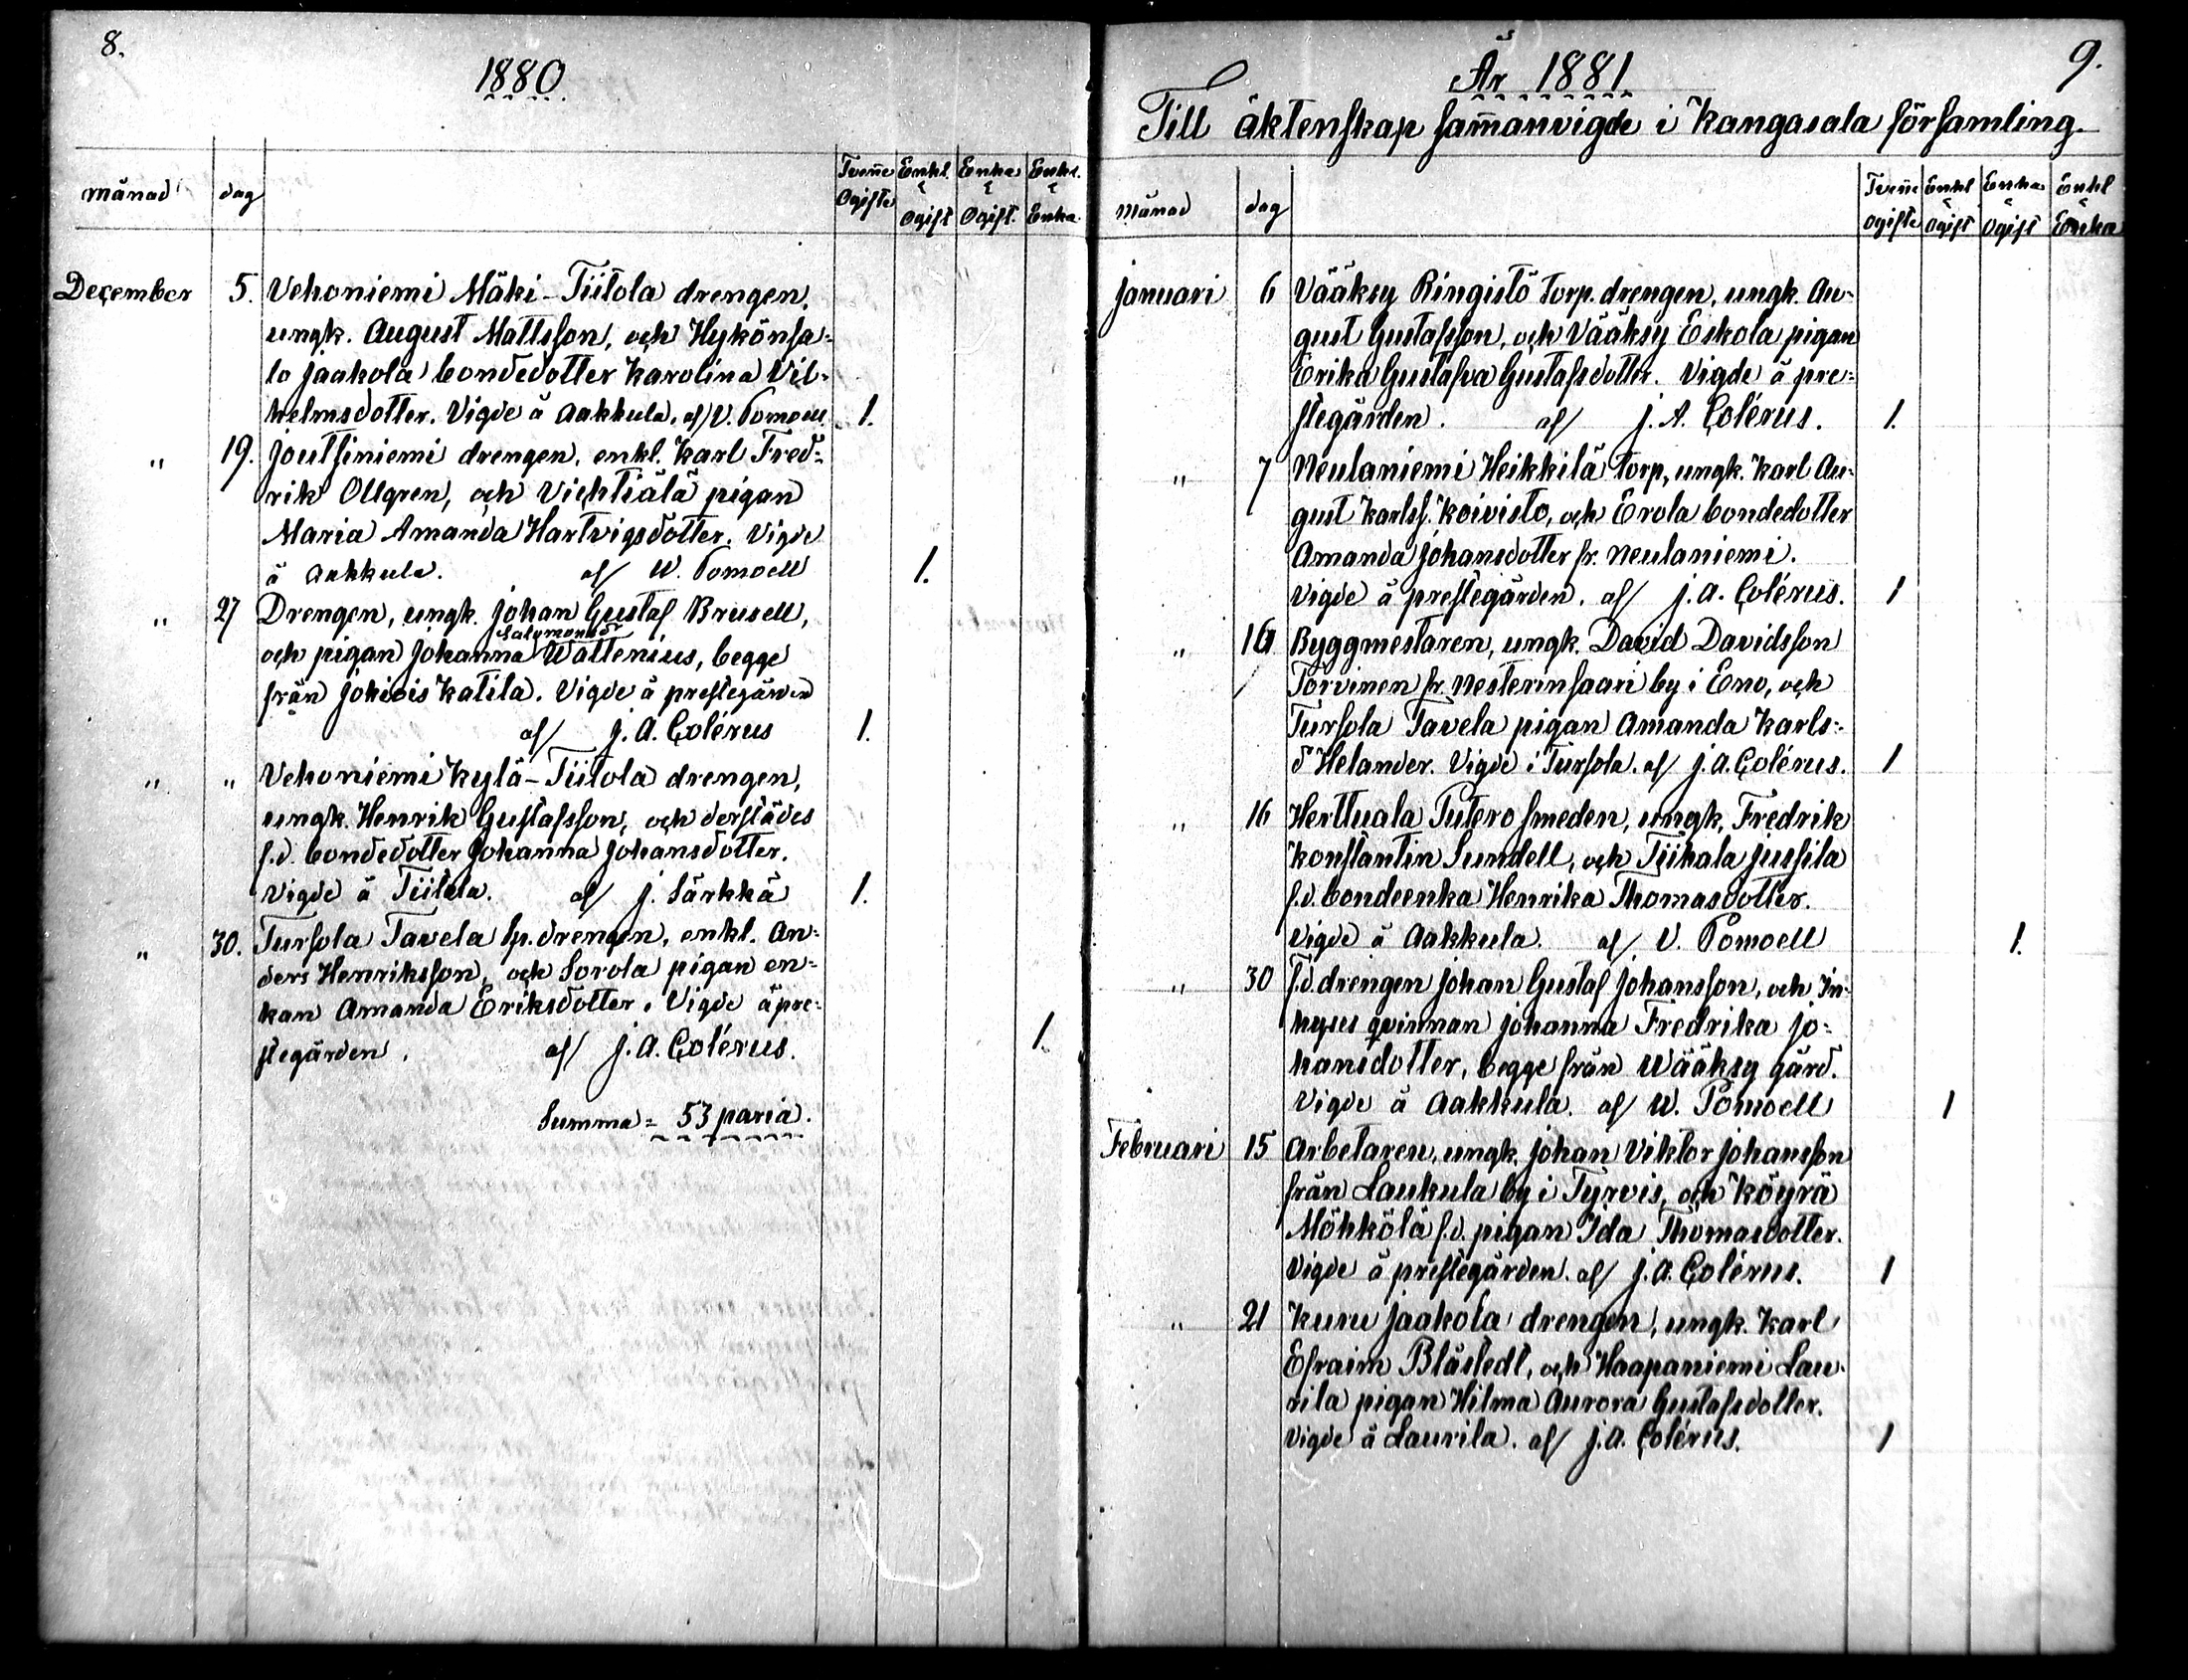 8.
1880
månad dag Tvenne Ogifte Enkl. & Ogift Enka & Ogift. Enkl. & Enka
December 5. Vehoniemi Mäki-Tiitola drengen,
ungk. August Mattsson, och Hykönsa-
lo Jaakola bondedotter Karolina Vil-
helmsdotter. Vigde å Aakkula. af V. Pomoell. 1.
" 19. Joutsiniemi drengen, enkl. Karl Fred-
rik Ollgren, och Vichtiälä pigan
Maria Amanda Hartvigsdotter. Vigde
å Aakkula. af W. Pomoell 1.
" 27 Drengen, ungk. Johan Gustaf Brusell,
Salomonsdr
och pigan Johanna Wattenius, begge
från Johiois Katila. Vigde å prestegården
af J. A. Colérus 1.
" " Vehoniemi Kylä-Tiitola drengen,
ungk. Henrik Gustafsson, och derstädes
f.d. bondedotter Johanna Johansdotter.
Vigde å Tiitola. af J. Särkkä 1.
" 30. Tursola Tavela sp. drengen, enkl. An-
ders Henriksson, och Sorola pigan en-
kan Amanda Eriksdotter. Vigde å pre-
stegården. af J. A. Colérus. 1.
Summa = 53 paria.
9.
År 1881.
Till äktenskap sam̄anvigde i Kangasala församling.
månad dag Tvenne ogifte Enkl & Ogift Enka & Ogift Enkl & Enka
Januari 6 Vääksy Ringistö torp. drengen, ungk. Au-
gust Gustafsson, och Vääksy Eskola pigan
Erika Gustafva Gustafsdotter. Vigde å pre-
stegården. af J. A. Colérus. 1.
" 7 Neulaniemi Heikkilä torp., ungk. Karl Au-
gust Karlss. Koivisto, och Erola bondedotter
Amanda Johansdotter fr. Neulaniemi.
Vigde å prestegården. af J. A. Colérus. 1
" 16 Byggmestaren, ungk. David Davidsson
Torvinen fr. Nesterinsaari by i Eno, och
Tursola Tavela pigan Amanda Karls-
d Helander. Vigde i Tursola. af J. A. Colérus. 1
" 16 Herttuala Putero smeden, ungk. Fredrik
Konstantin Sundell, och Tiihala Jussila
f.d. bondeenka Henrika Thomasdotter.
Vigde å Aakkula. af V. Pomoell 1.
" 30 f.d. drengen Johan Gustaf Johansson, och In-
hyses qvinnan Johanna Fredrika Jo-
hansdotter, begge från Wääksy gård.
Vigde å Aakkula. af W. Pomoell 1
Februari 15 Arbetaren, ungk. Johan Viktor Johansson
från Laukula by i Tyrvis, och Köyrä
Möhkölä f.d. pigan Ida Thomasdotter.
Vigde å prestegården. af J. A. Colérus. 1
" 21 Kuru Jaakola drengen, ungk. Karl
Efraim Blåstedt, och Haapaniemi Lau-
rila pigan Hilma Aurora Gustafsdotter.
Vigde å Laurila. af J. A. Colérus. 1